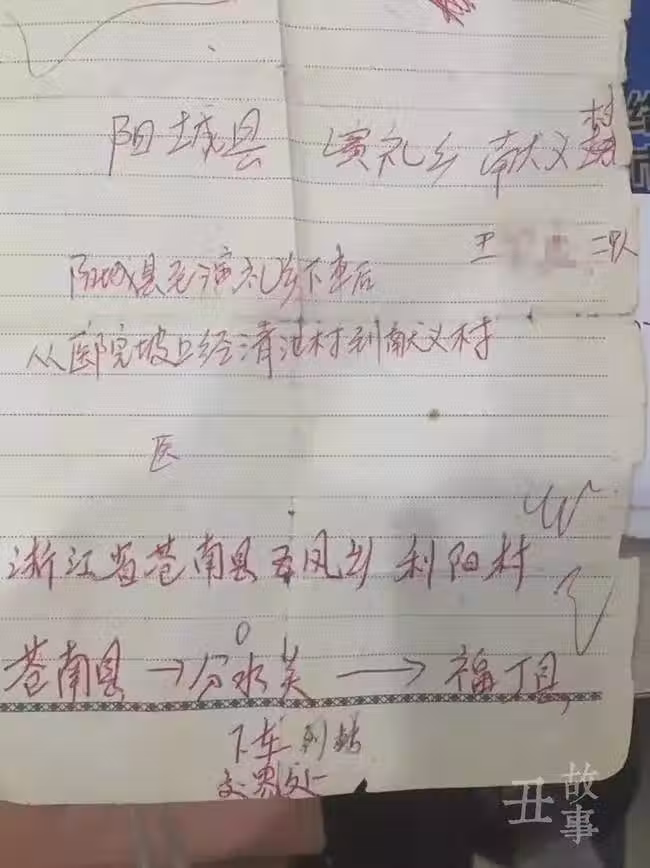 阳城县 演礼乡 献义村
王 二队
阳城县至演礼乡下车后
从医院坡上经清池村到献义村
医
浙江省苍南县五凤乡 利阳村
苍南县→分水关→福丁县
下车
交界处
丑故事